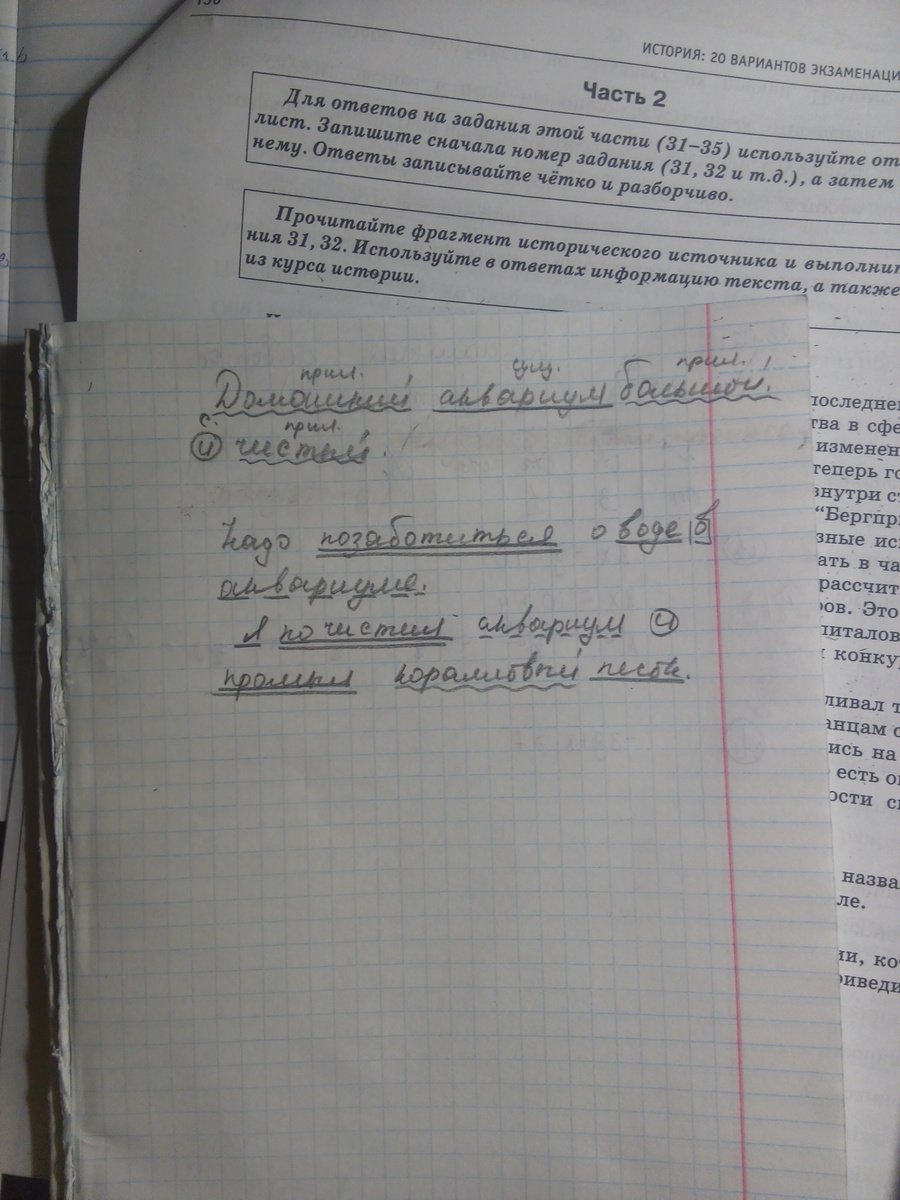 130
ИСТОРИЯ: 20 ВАРИАНТОВ ЭКЗАМЕНАЦИ
Часть 2
Для ответов на задания этой части (31–35) используйте от
лист. Запишите сначала номер задания (31, 32 и т.д.), а затем
нему. Ответы записывайте чётко и разборчиво.
Прочитайте фрагмент исторического источника и выполнит
ния 31, 32. Используйте в ответах информацию текста, а также
из курса истории.
прил. сущ. прил.
Домашний аквариум большой,
с. прил.
и чистый.
Надо позаботиться о воде в
аквариуме.
Я почистил аквариум и
промыл коралловый песок.
последне
тва в сфе
изменен
теперь го
внутри ст
“Бергпри
зные ис
ать в ча
рассчит
ров. Это
питалов
конку
ливал т
анцам с
ись на
есть о
ости с
назва
ле.
ии, ко
риведи